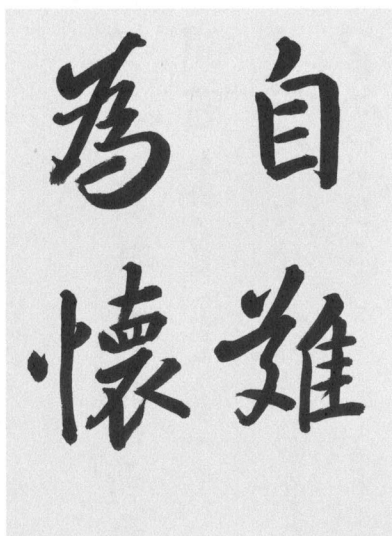 自難
為懷